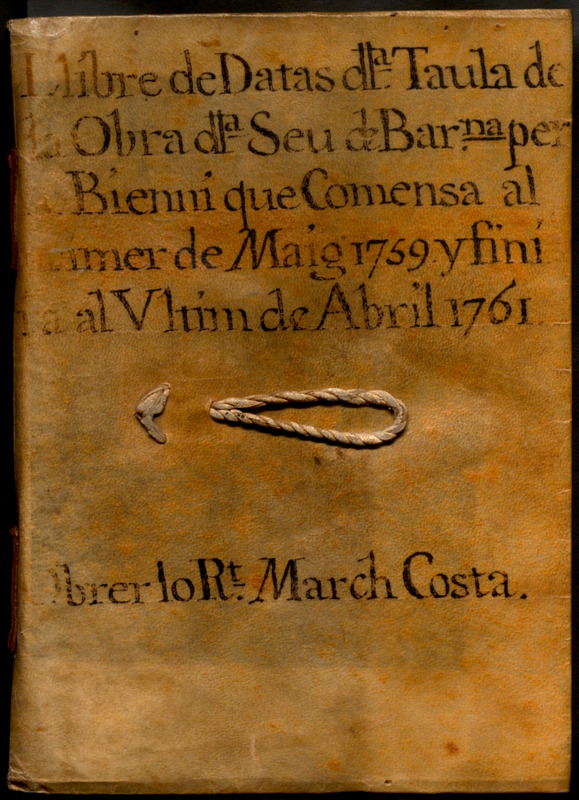 Llibre de Datas dlla Taula de
la Obra dlla Seu de Bar.na per
Bienni que Comensa al
primer de Maig 1759. y fini
ra al Vltim de Abril 1761
Obrer lo Rt. March Costa.